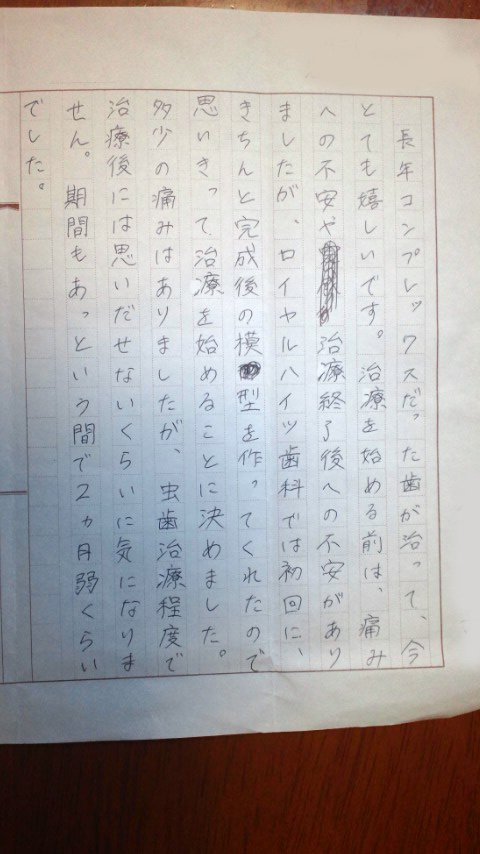 長年コンプレックスだった歯が治って、今
とても嬉しいです。治療を始める前は、痛み
への不安や治療終了後への不安があり
ましたが、ロイヤルハイツ歯科では初回に、
きちんと完成後の模型を作ってくれたので
思いきって治療を始めることに決めました。
多少の痛みはありましたが、虫歯治療程度で
治療後には思いだせないくらいに気になりま
せん。期間もあっという間で2ヵ月弱くらい
でした。